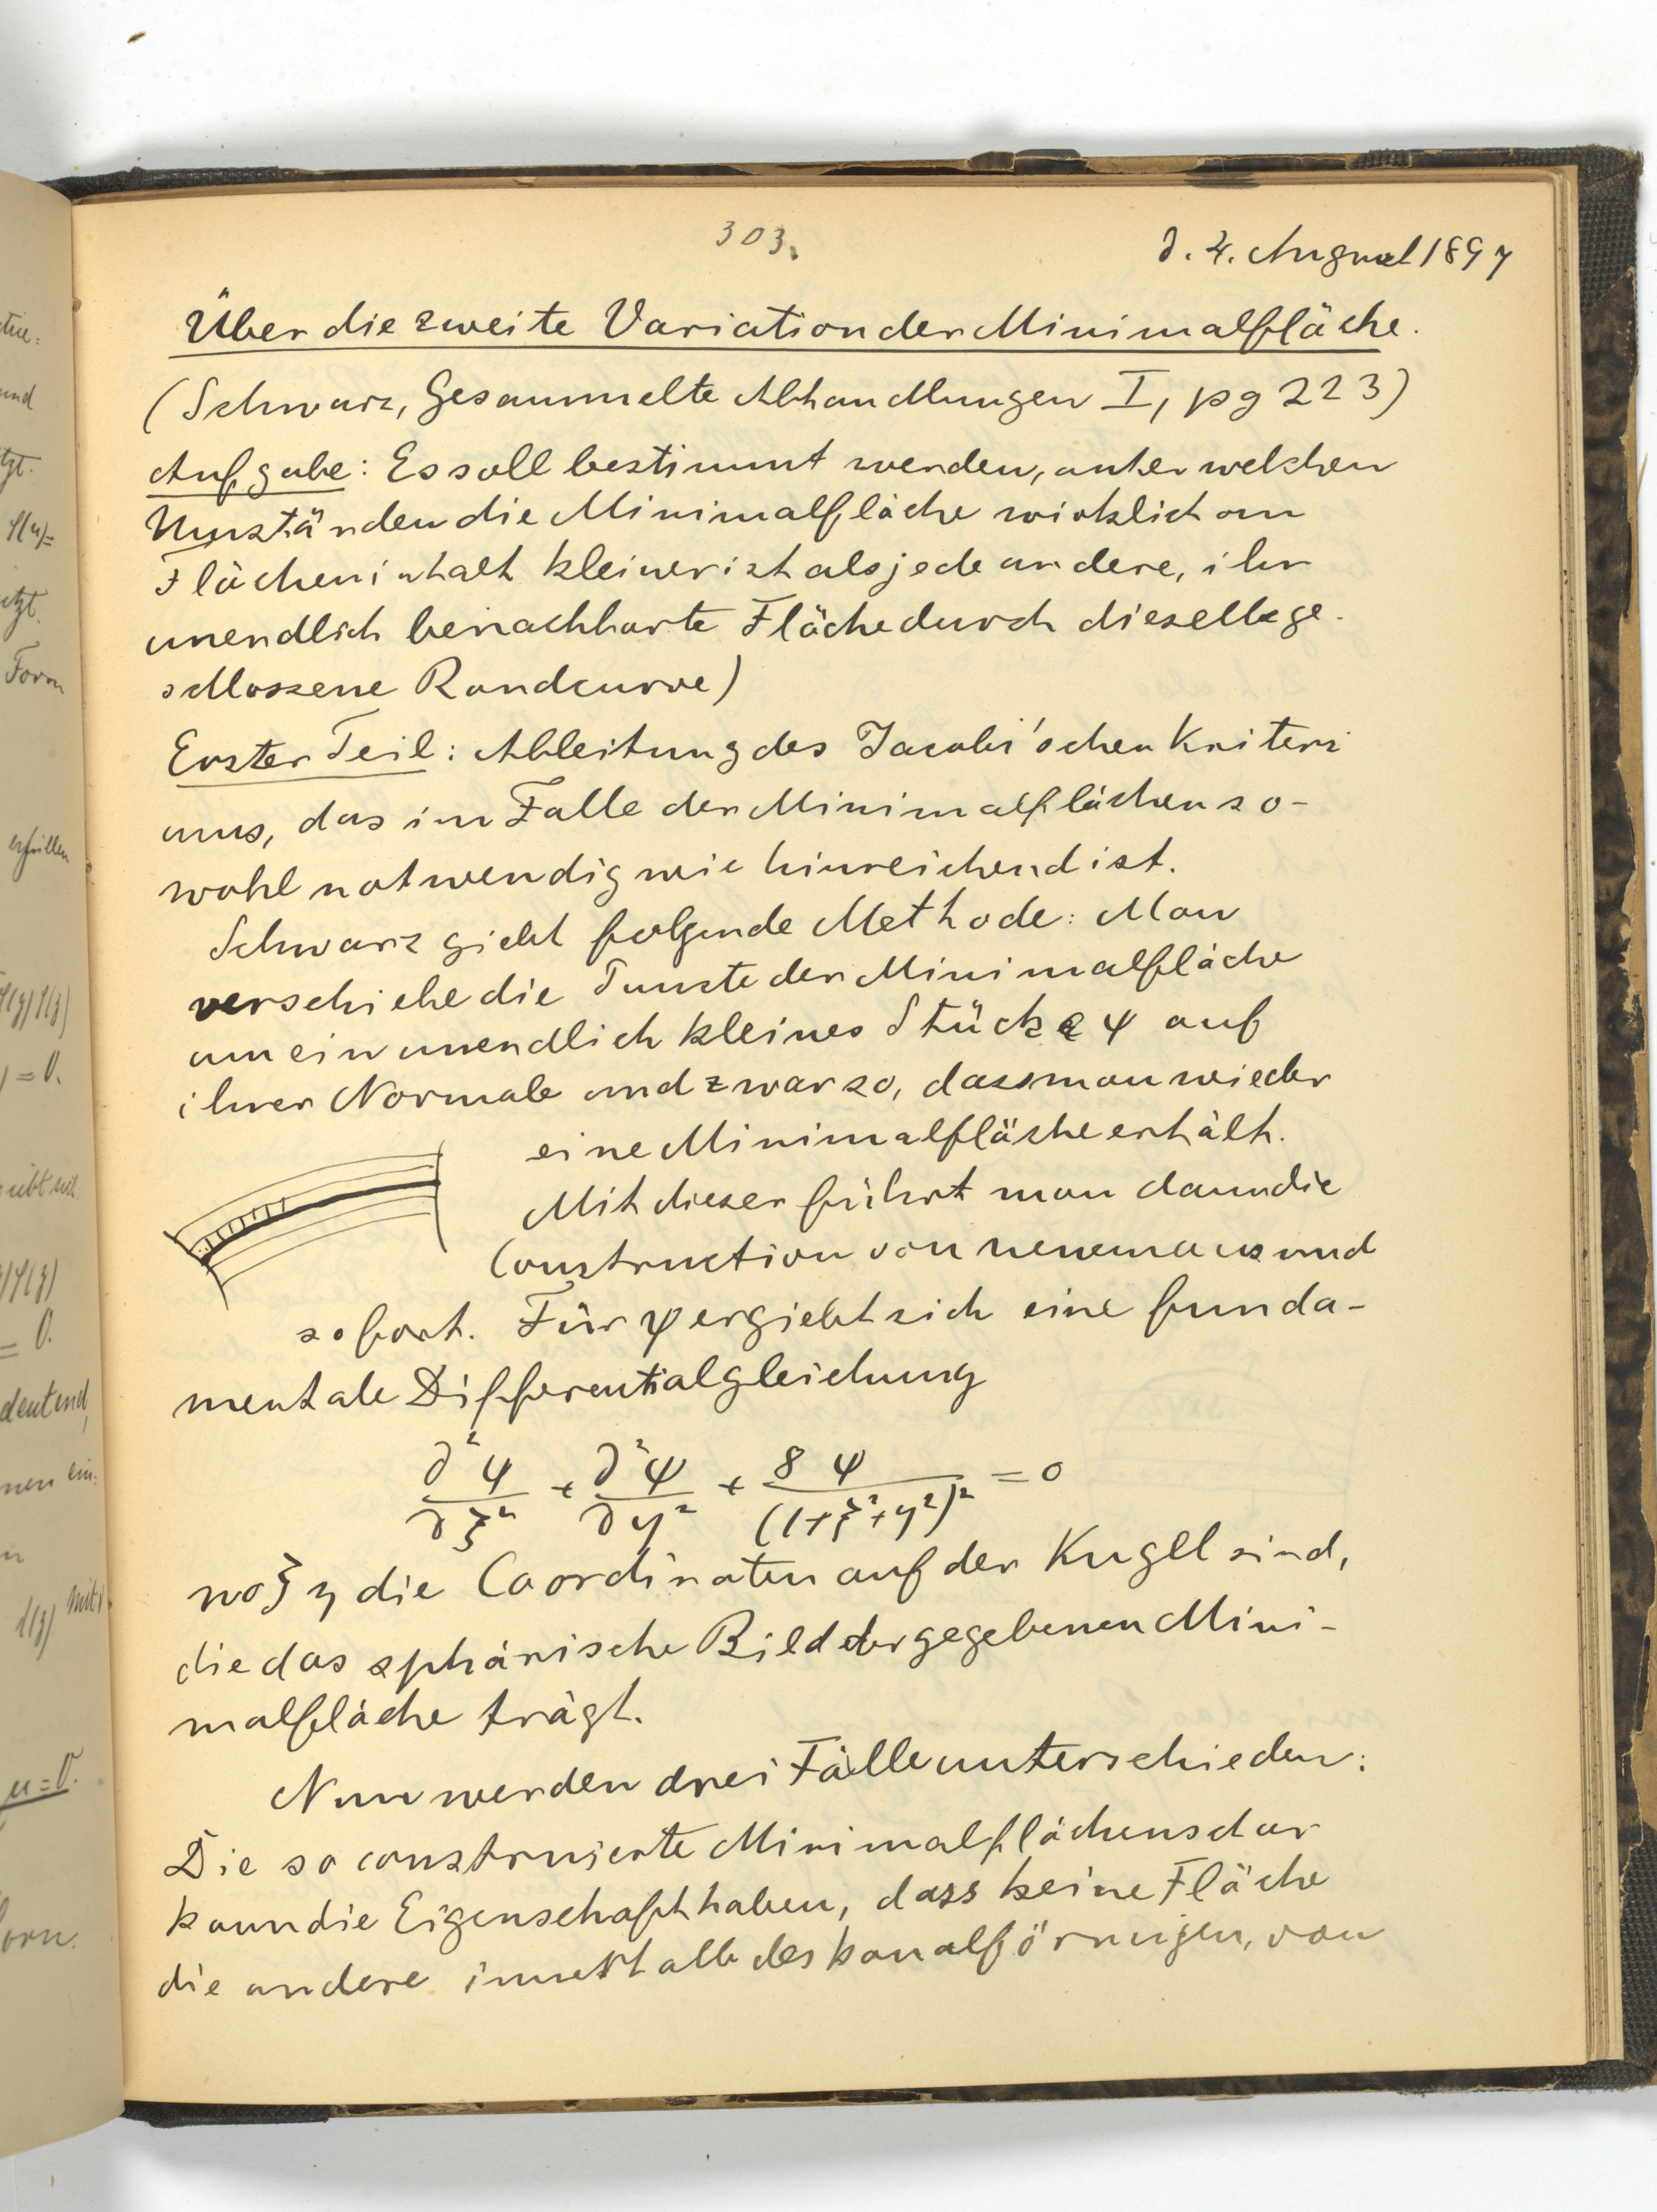 303.
d. 4. August 1897
Über die zweite Variation der Minimalfläche.
(Schwarz, Gesammelte Abhandlungen I, pg 223)
Aufgabe: Es soll bestimmt werden, unter welchen
Umständen die Minimalfläche wirklich an
Flächeninhalt kleiner ist als jede andere, ihr
unendlich benachbarte Fläche durch dieselbe ge-
schlossene Randcurve)
Erster Teil: Ableitung des Jacobi'schen Kriteri
ums, das im Falle der Minimalflächen so-
wohl notwendig wie hinreichend ist.
Schwarz giebt folgende Methode: Man
verschiebe die Punkte der Minimalfläche
um ein unendlich kleines Stück ε ψ auf
ihrer Normale und zwar so, dass man wieder
eine Minimalfläche erhält.
Mit dieser führt man dann die
Construction von neuem aus und
sofort. Für ψ ergiebt sich eine funda-
mentale Differentialgleichung
∂²ψ/∂ξ² + ∂²ψ/∂η² + 8ψ/(1+ξ²+η²)² = 0
wo ξ η die Coordinaten auf der Kugel sind,
die das sphärische Bild der gegebenen Mini-
malfläche trägt.
Nun werden drei Fälle unterschieden:
Die so construierte Minimalflächenschar
kann die Eigenschaft haben, dass keine Fläche
die andere innerhalb des kanalförmigen, von
tue:
und
tzt.
etzt.
Form
erfüllen
= 0.
= 0.
deutend,
ein:
mit
u=0.